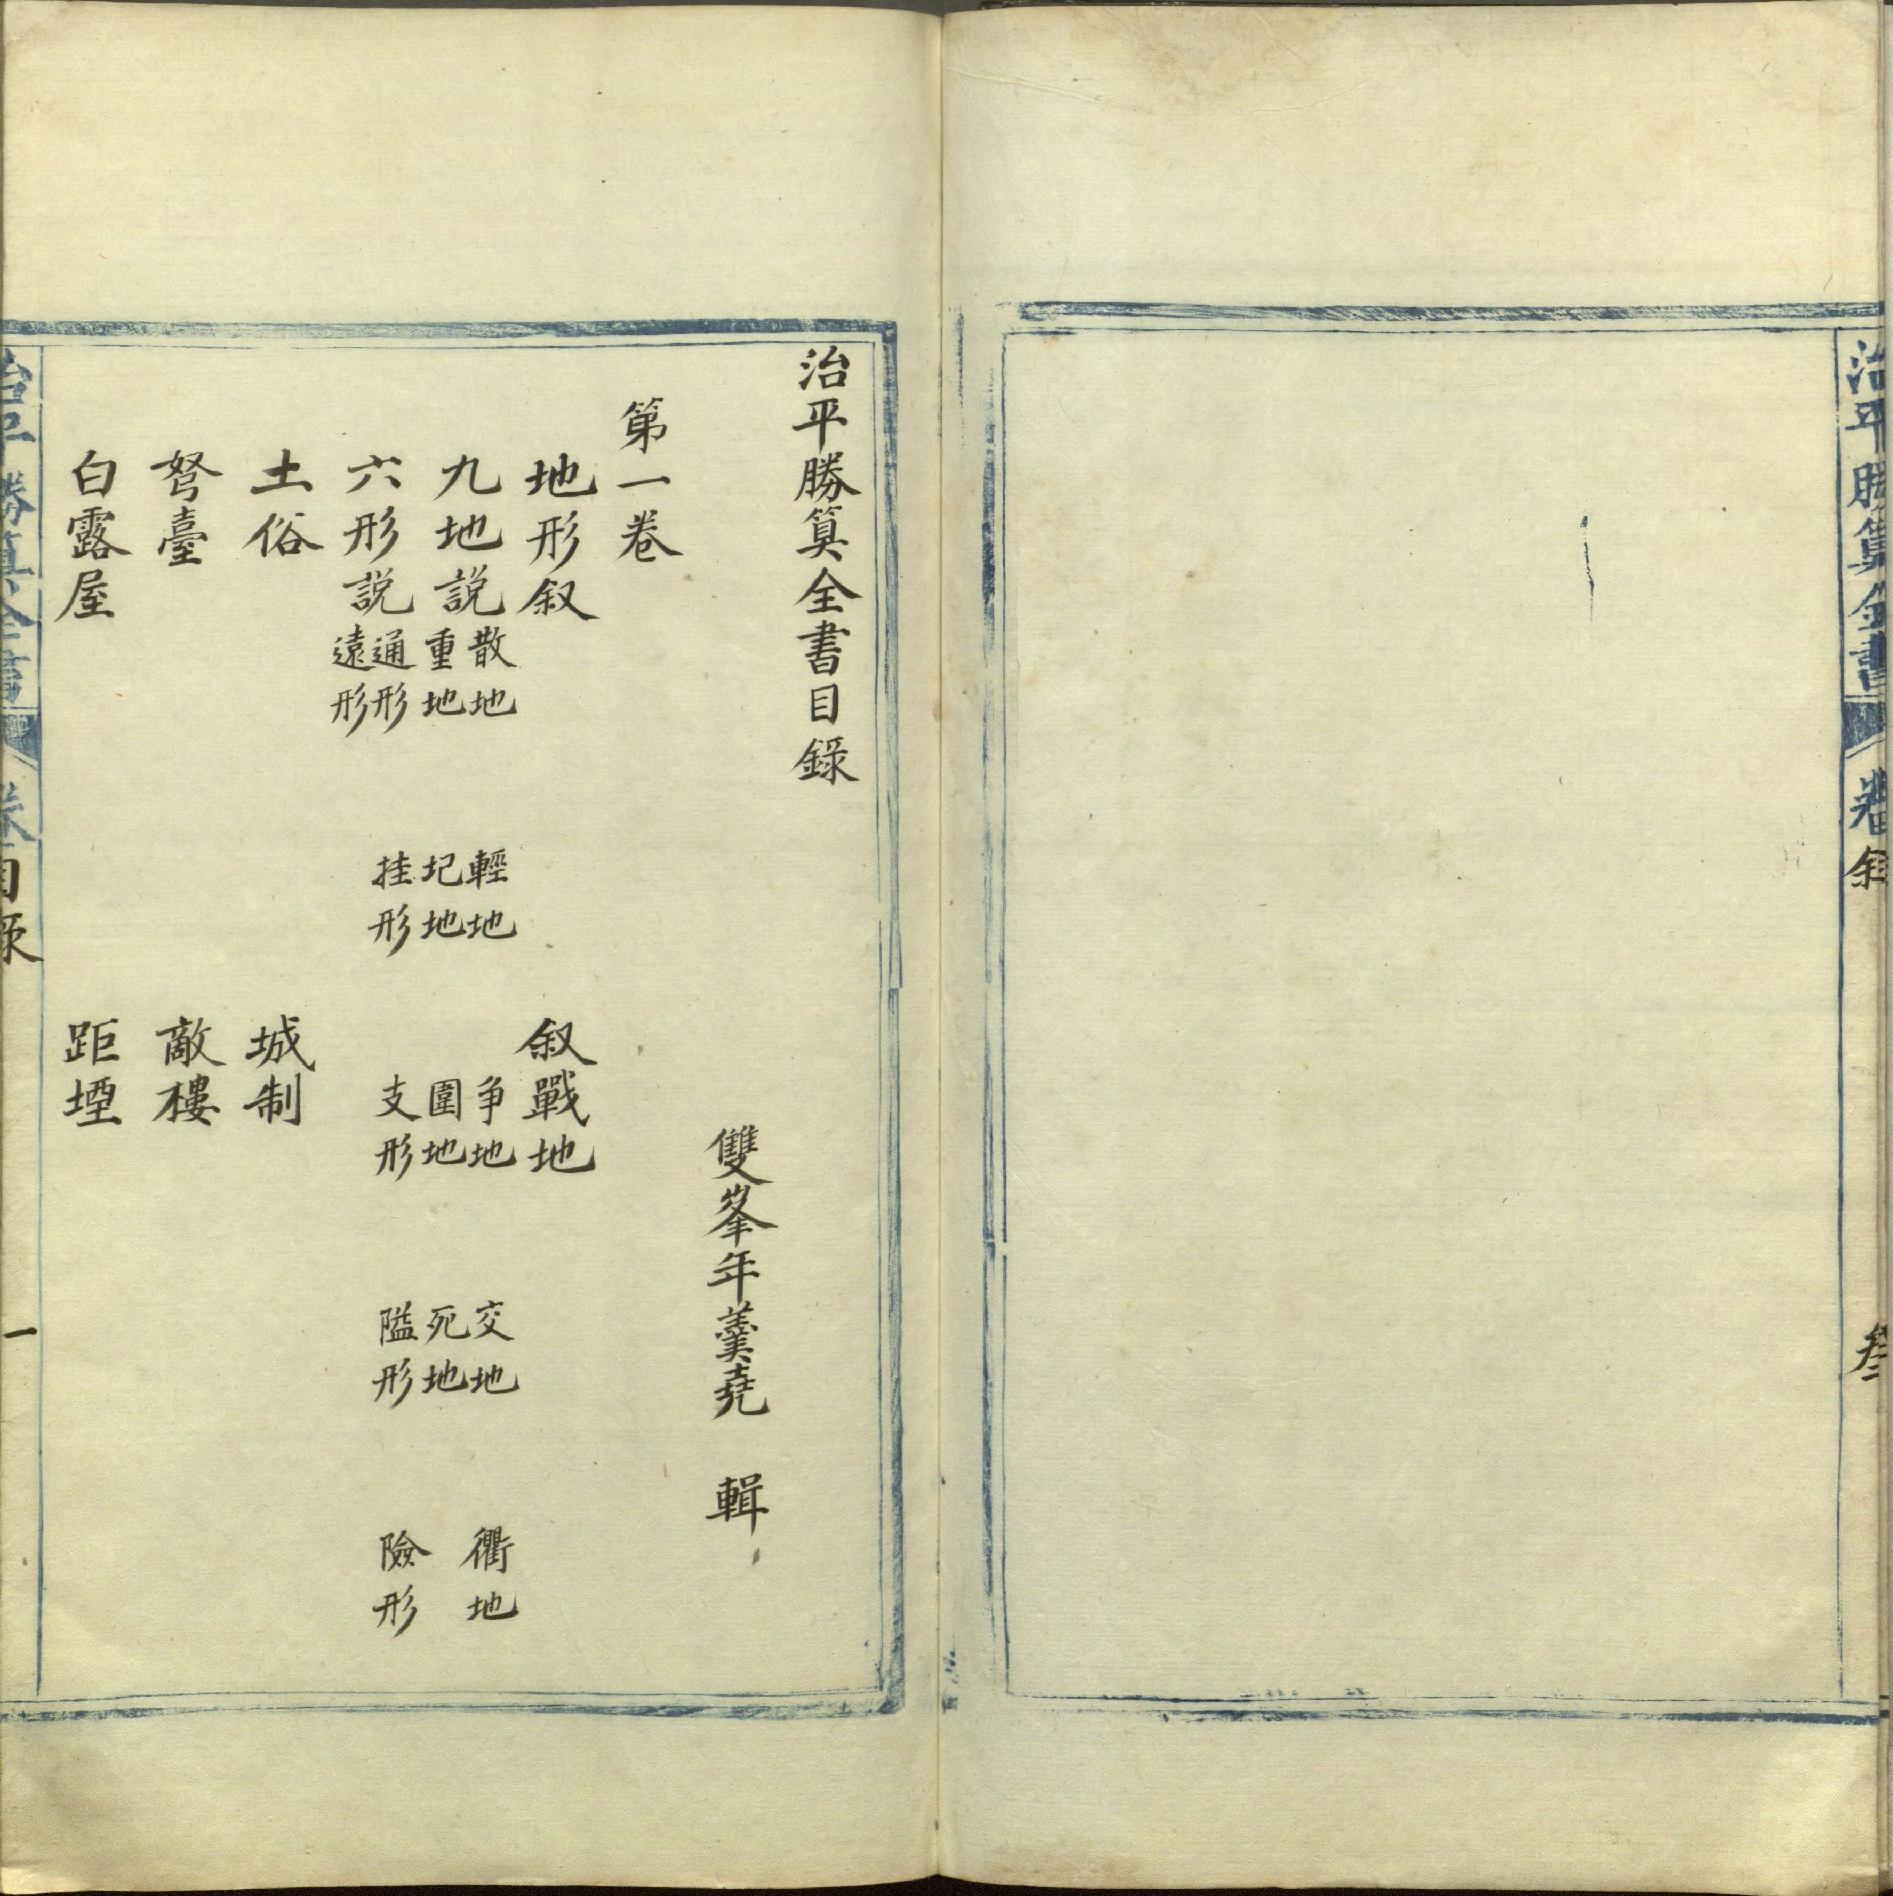 治平勝算全書
卷
叙
叁
治平勝算全書目錄
雙峯年羹堯 輯
第一卷
地形叙 叙戰地
九地說 散地 輕地 争地 交地 衢地
重地 圮地 圍地 死地
六形説 通形 挂形 支形 隘形 險形
遠形
土俗 城制
弩臺 敵樓
白露屋 距堙
治平勝算全書
卷
目錄
一